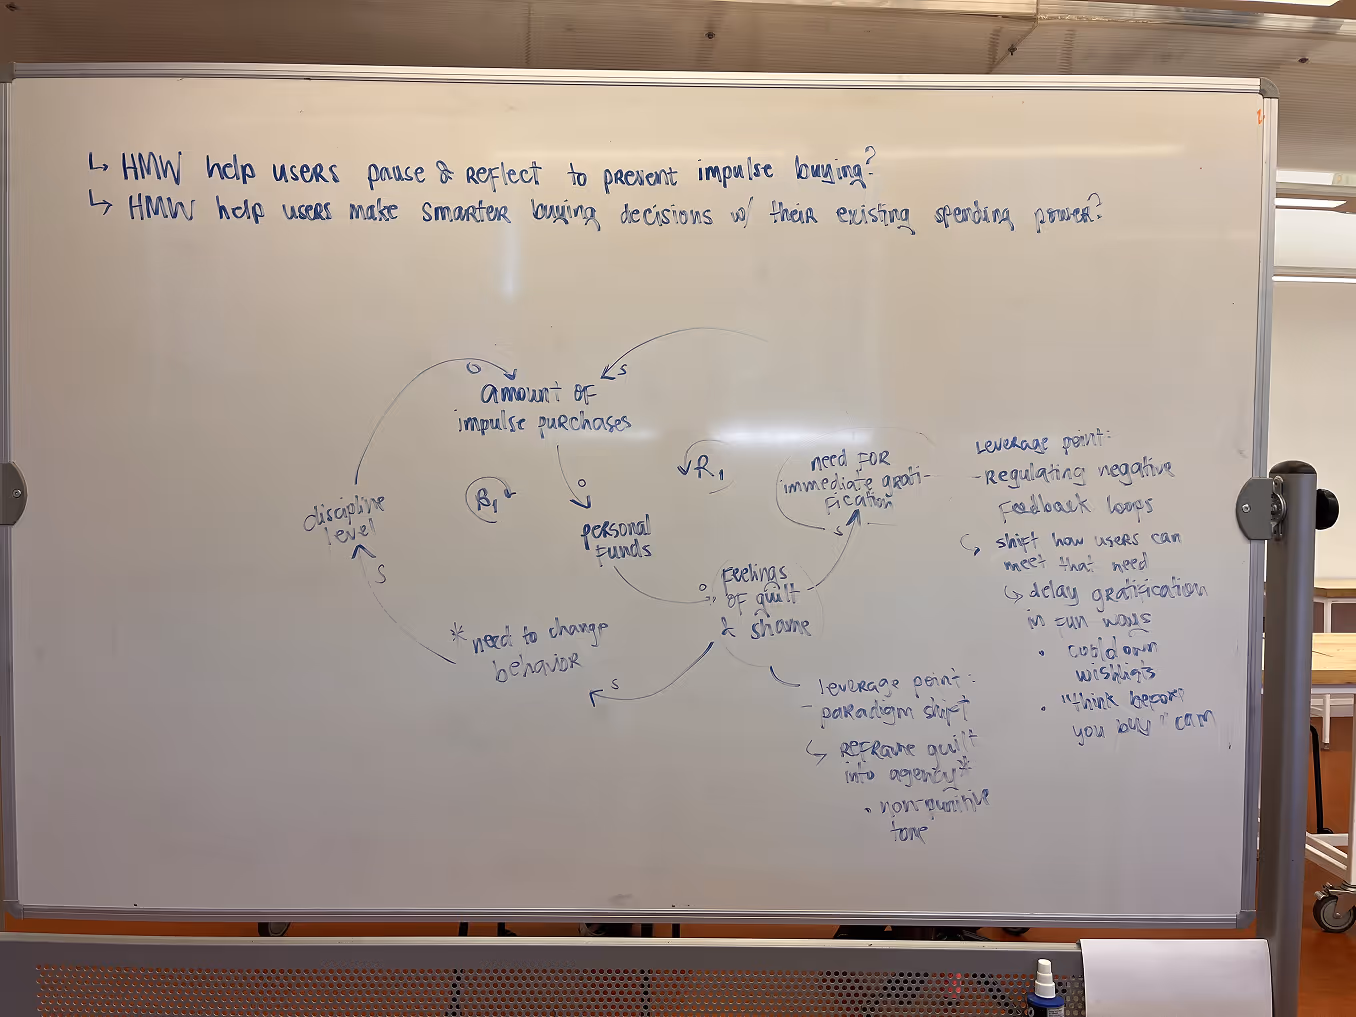 ↳ HMW help users pause & reflect to prevent impulse buying?
↳ HMW help users make smarter buying decisions w/ their existing spending power?
O
S
amount of
impulse purchases
O
B1
R1
discipline
level
S
personal
funds
need for
immediate grati-
fication
S
O
feelings
of guilt
& shame
* need to change
behavior
S
leverage point:
- paradigm shift
↳ reframe guilt
into agency*
• non-punitive
tone
leverage point:
- regulating negative
feedback loops
↳ shift how users can
meet that need
↳ delay gratification
in fun ways
• cooldown
wishlists
• "think before
you buy" cam